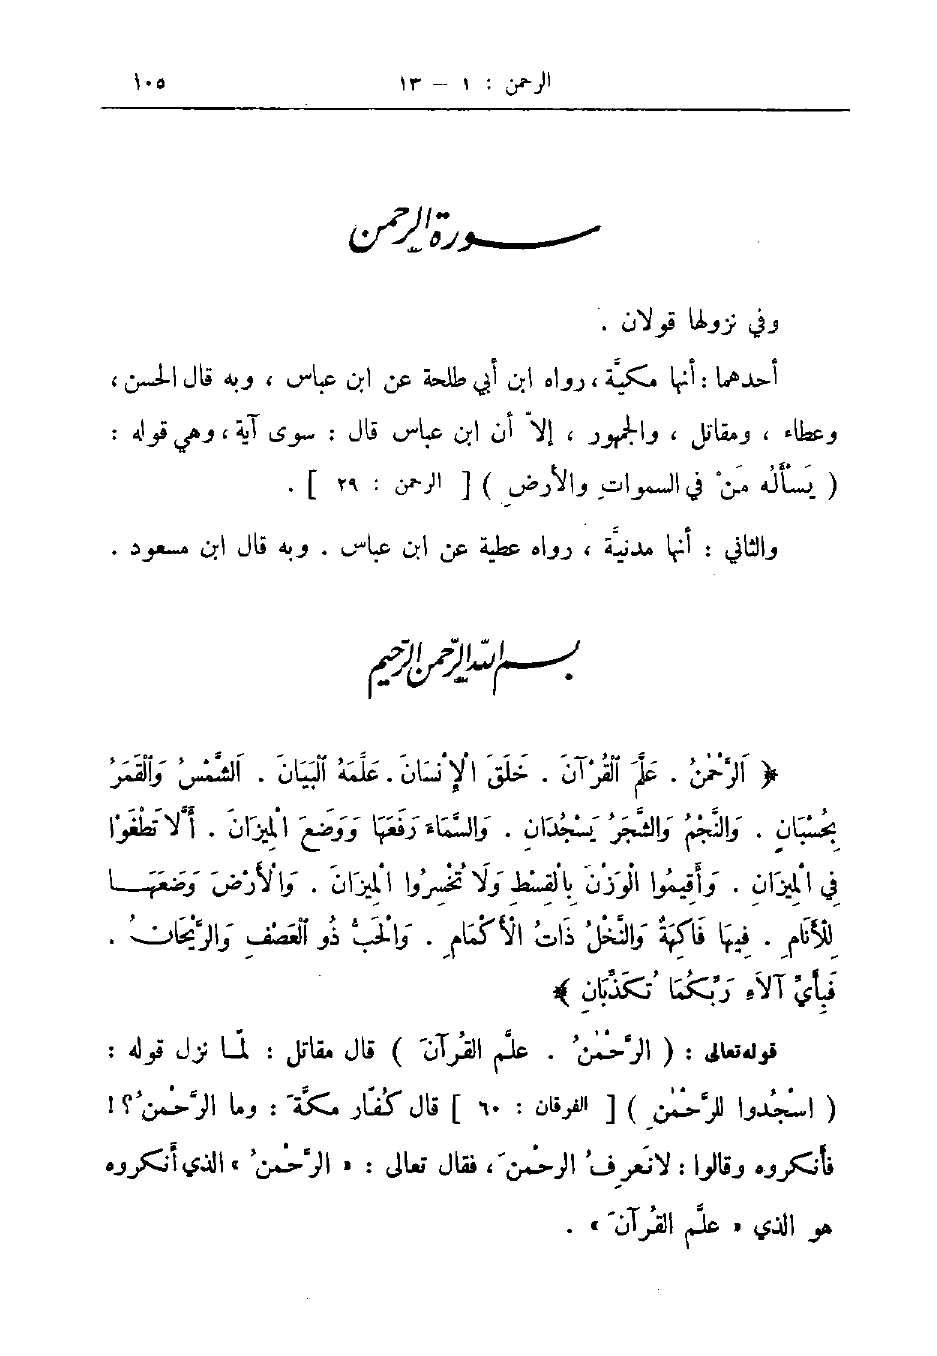 الرحمن : ١ – ١٣ ١٠٥
سورة الرحمن
وفي نزولها قولان .
أحدهما : أنها مكيَّة ، رواه ابن أبي طلحة عن ابن عباس ، وبه قال الحسن ،
وعطاء ، ومقاتل ، والجمهور ، إلاّ أن ابن عباس قال : سوى آية ، وهي قوله :
( يَسْأَلُه مَنْ في السموات والأرضِ ) [ الرحمن : ٢٩ ] .
والثاني : أنها مدنيَّة ، رواه عطية عن ابن عباس . وبه قال ابن مسعود .
بسم الله الرّحمن الرّحيم
﴿ اَلرَّحْمٰنُ . عَلَّمَ الْقُرْآنَ . خَلَقَ الْإِنْسَانَ . عَلَّمَهُ الْبَيَانَ . اَلشَّمْسُ وَالْقَمَرُ
بِحُسْبَانٍ . وَالنَّجْمُ وَالشَّجَرُ يَسْجُدَانِ . وَالسَّمَاءَ رَفَعَهَا وَوَضَعَ الْمِيزَانَ . أَلَّا تَطْغَوْا
فِي الْمِيزَانِ . وَأَقِيمُوا الْوَزْنَ بِالْقِسْطِ وَلَا تُخْسِرُوا الْمِيزَانَ . وَالْأَرْضَ وَضَعَهَا
لِلْأَنَامِ . فِيهَا فَاكِهَةٌ وَالنَّخْلُ ذَاتُ الْأَكْمَامِ . وَالْحَبُّ ذُو الْعَصْفِ وَالرَّيْحَانُ .
فَبِأَيِّ آلَاءِ رَبِّكُمَا تُكَذِّبَانِ ﴾
قوله تعالى : ( الرَّحْمٰنُ . علَّم القُرآنَ ) قال مقاتل : لمّا نزل قوله :
( اسْجُدوا للرَّحْمٰنِ ) [ الفرقان : ٦٠ ] قال كُفّار مكَّةَ : وما الرَّحْمنُ ؟!
فأنكروه وقالوا : لا نَعرِفُ الرحْمنَ ، فقال تعالى : « الرَّحْمنُ » الذي أنكروه
هو الذي « علَّم القُرآنَ » .